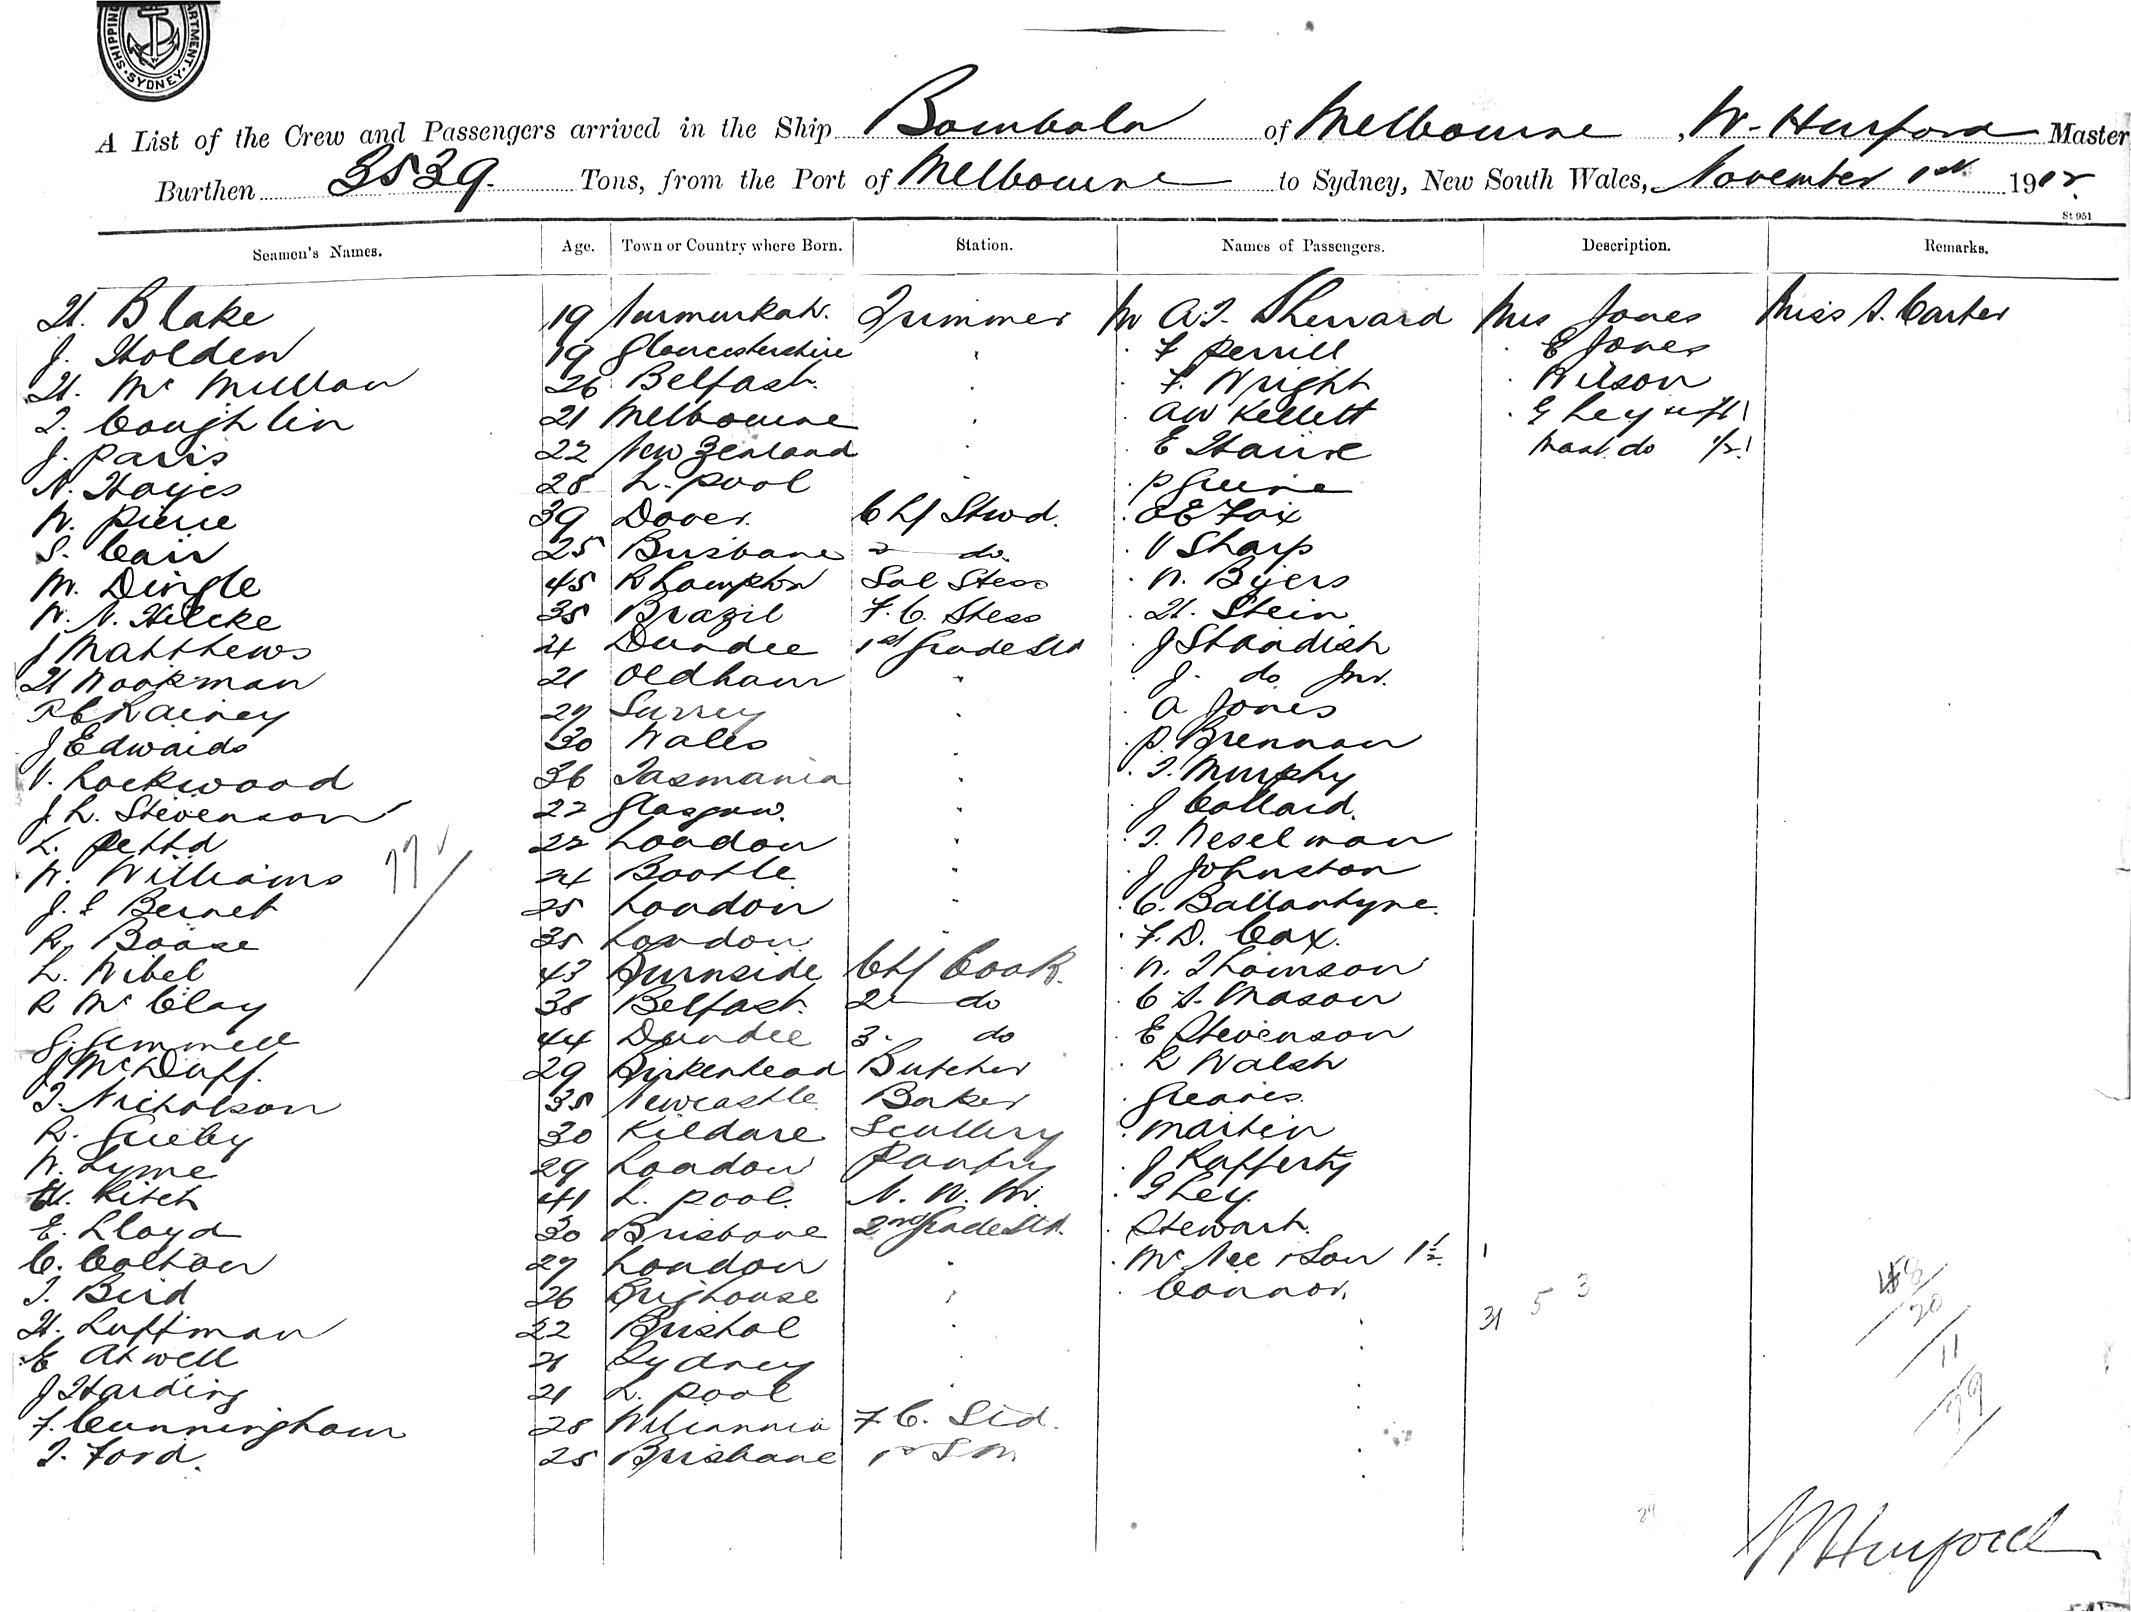 SHIPPING DEPARTMENT. SYDNEY
A List of the Crew and Passengers arrived in the Ship Bombala of Melbourne, W. Hurford Master
Burthen 3539. Tons, from the Port of Melbourne to Sydney, New South Wales, November 1st 1912.
St 951
Seamen's Names. Age. Town or Country where Born. Station. Names of Passengers. Description. Remarks.
H. Blake 19 Nurmurkah. Trimmer Mr A.J. Sherrard Mrs Jones Miss A. Carter
J. Holden 19 Gloucestershire " . F Perrill . E Jones
H. Mc Mullan 26 Belfast. " . F. Wright . Wilson
T. Coughlin 21 Melbourne " . AW Kellett . G Ley
J. Paris 22 New Zealand " . E Hawse Mast. do 1/2 1
N. Hayes 28 L. pool " . P Greene
W. Pierce 39 Dover. Chf Stwd. . Fox
S. Cair 25 Brisbane 2 do. . V Sharp
M. Dingle 45 R hampton Sal Stess . W. Byers
W. N. Hilcke 35 Brazil F. C. Stess . H. Stein
J Matthews 21 Dundee 1st Grade Std . J Standish
H Workman 21 Oldham " . J. do Jnr.
R C Rainey 27 Surrey " . A Jones
J Edwards 30 Wales " . P. Brennan
V. Lockwood 36 Tasmania " . T. Murphy
J. L. Stevenson 22 Glasgow. " . J Collard.
L. Pettd 22 London " . T. Weselman
W. Williams 77 24 Bootle " . J Johnston
J. S Bernet 25 London " . C. Ballantyne.
R. Boase 35 London. " . F. D. Cox.
L. Wibel 43 Burnside Chf Cook. . W. Thomson
R Mc Clay 38 Belfast. 2 do . C. A. Mason
G. Gemmell 44 Dundee 3. do . E Stevenson
J McDuff. 29 Birkenhead Butcher . R Walsh
T. Nicholson 35 Newcastle Baker . Greaves.
R. Grieby 30 Kildare Scullery . Martin
W. Lyme 29 London Pantry . J Rafferty
H. Kitch 41 L. pool. N. W. M. . G Ley.
E. Lloyd 30 Brisbane 2nd Grade Std. . Stewart.
C. Colton 27 London " . Mc Nee & Son 1 1/2. 1
T. Bird 26 Brighouse " . Connor.
H. Luffman 22 Bristol " 31 5 3
E Atwell 21 Sydney "
J Harding 21 L. pool "
F. Cunningham 28 Wilcannia F. C. Std.
T. Ford. 25 Brisbane
20
11
79
29
W Hurford